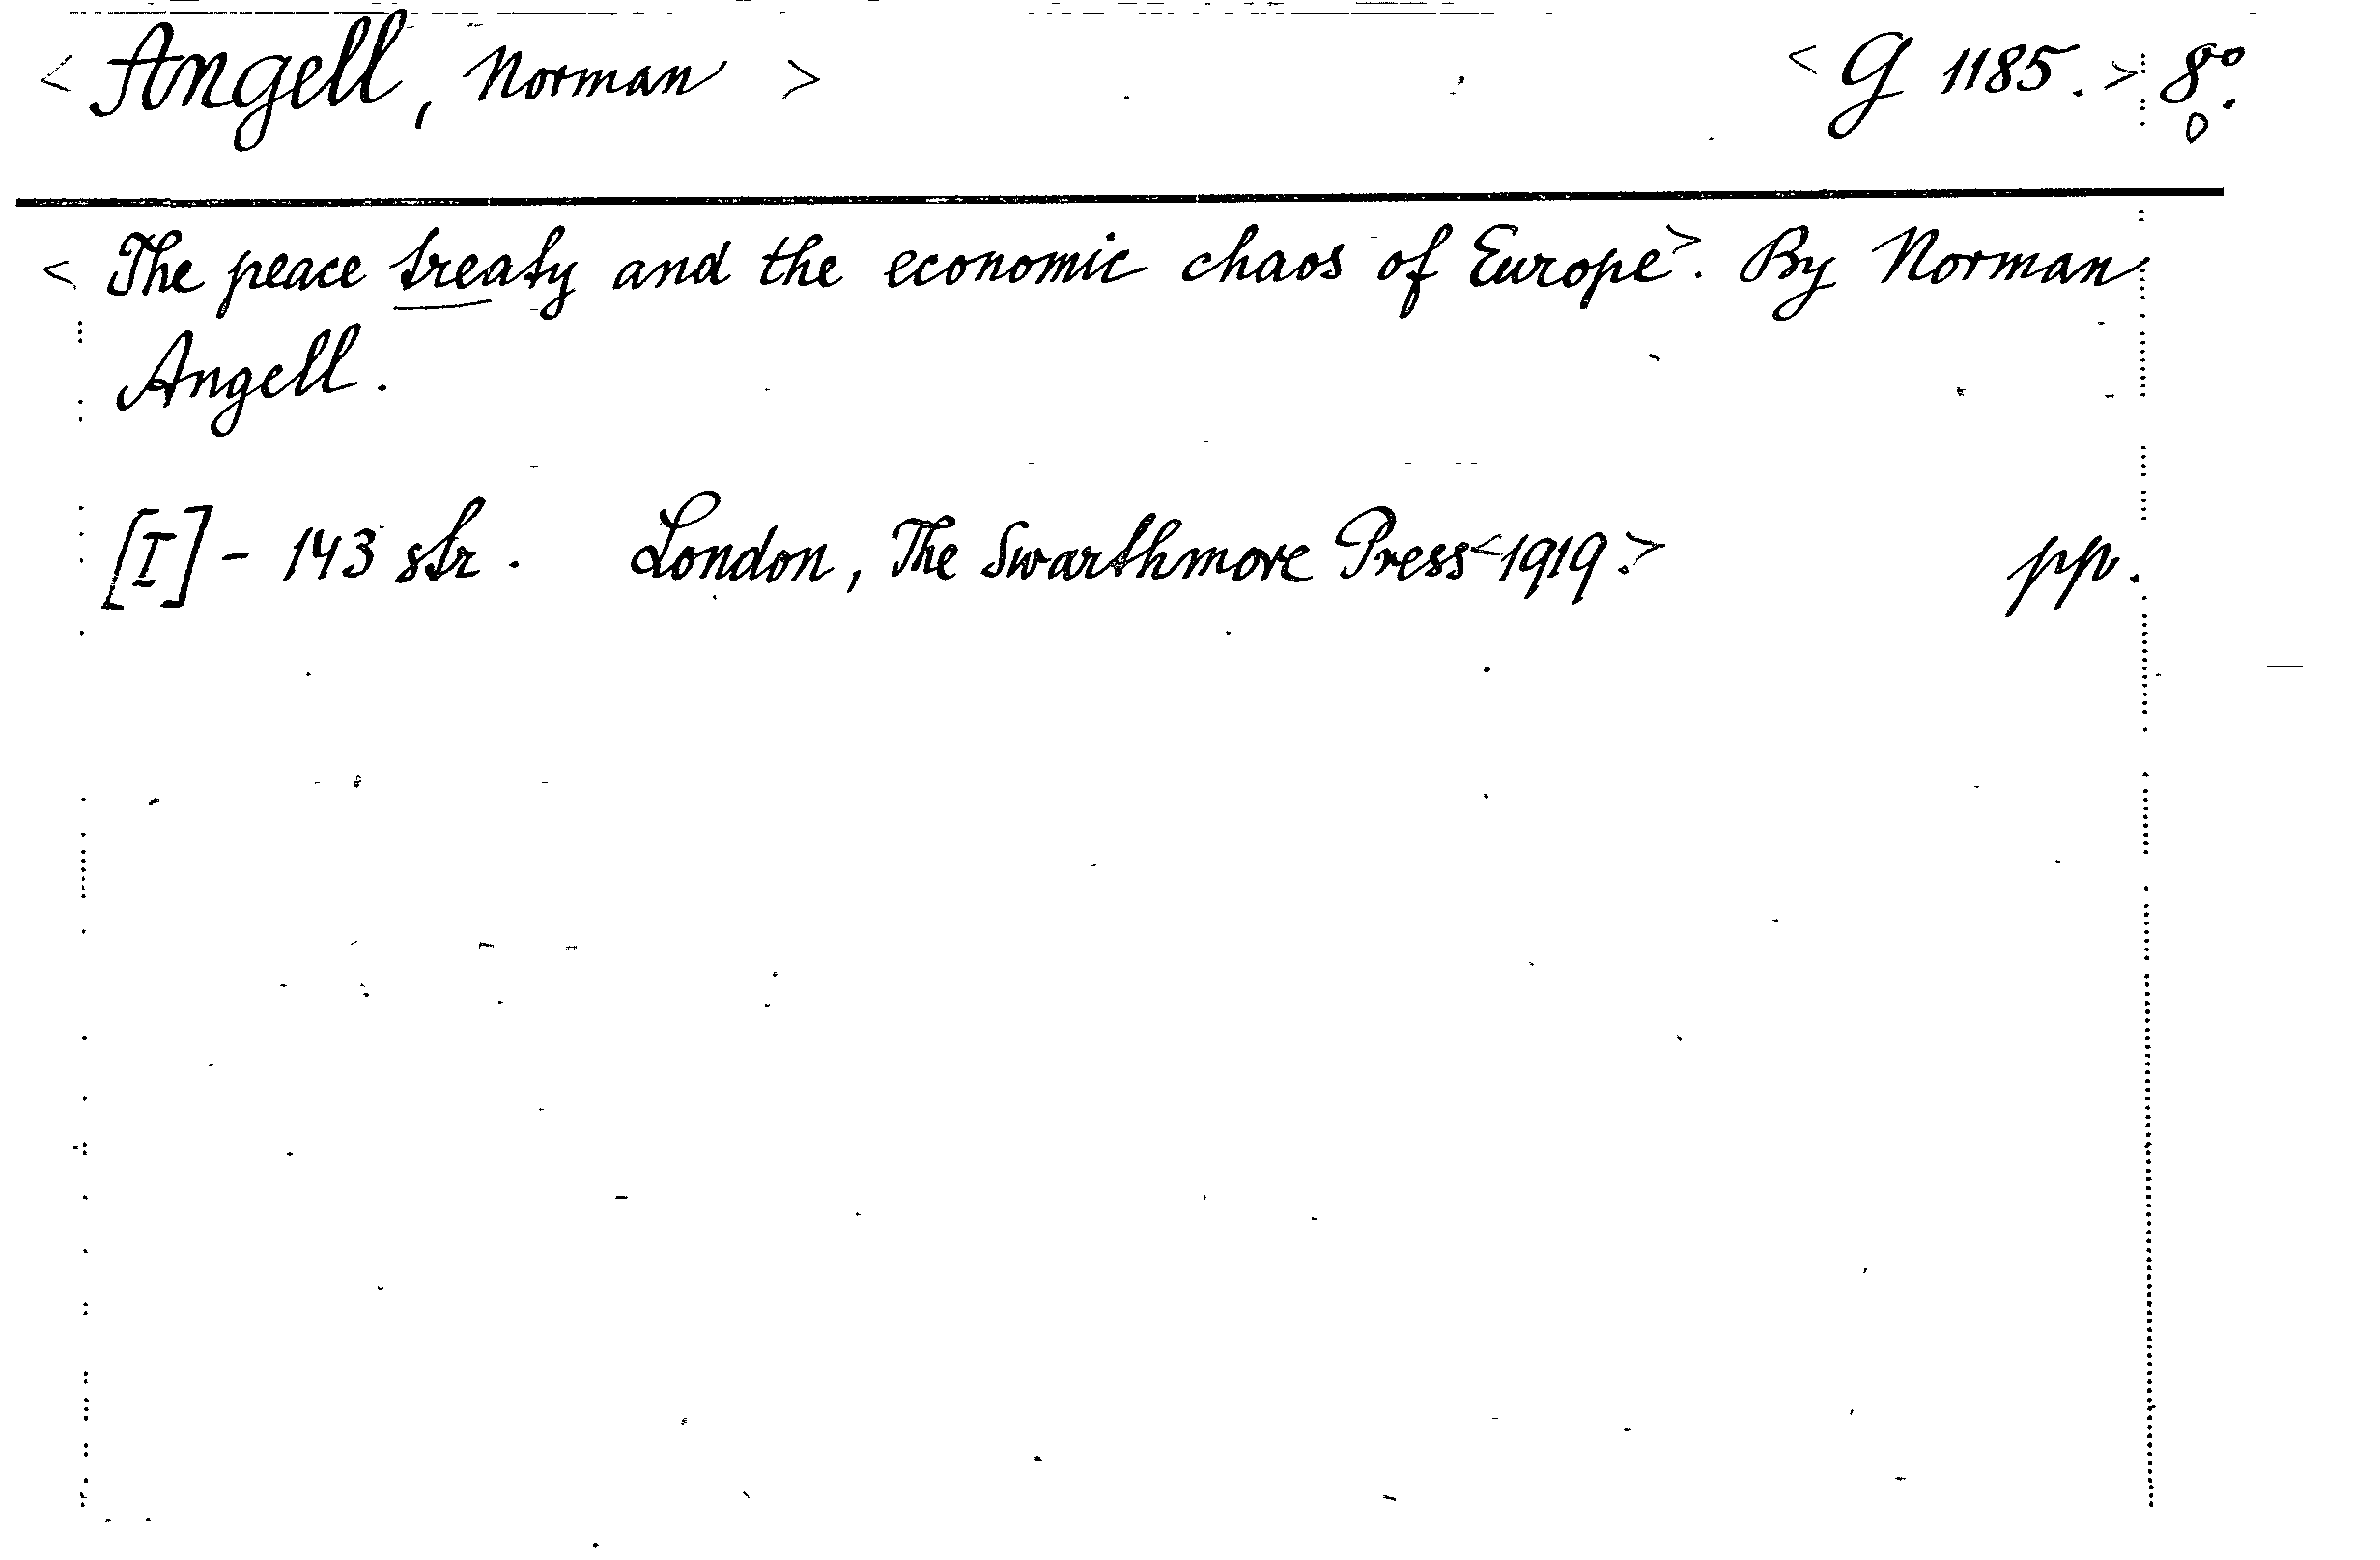 < Angell, Norman > < G 1185. > 8°.
0
< The peace treaty and the economic chaos of Europe >. By Norman
Angell.
[I] - 143 str. London, The Swarthmore Press < 1919. > pp.